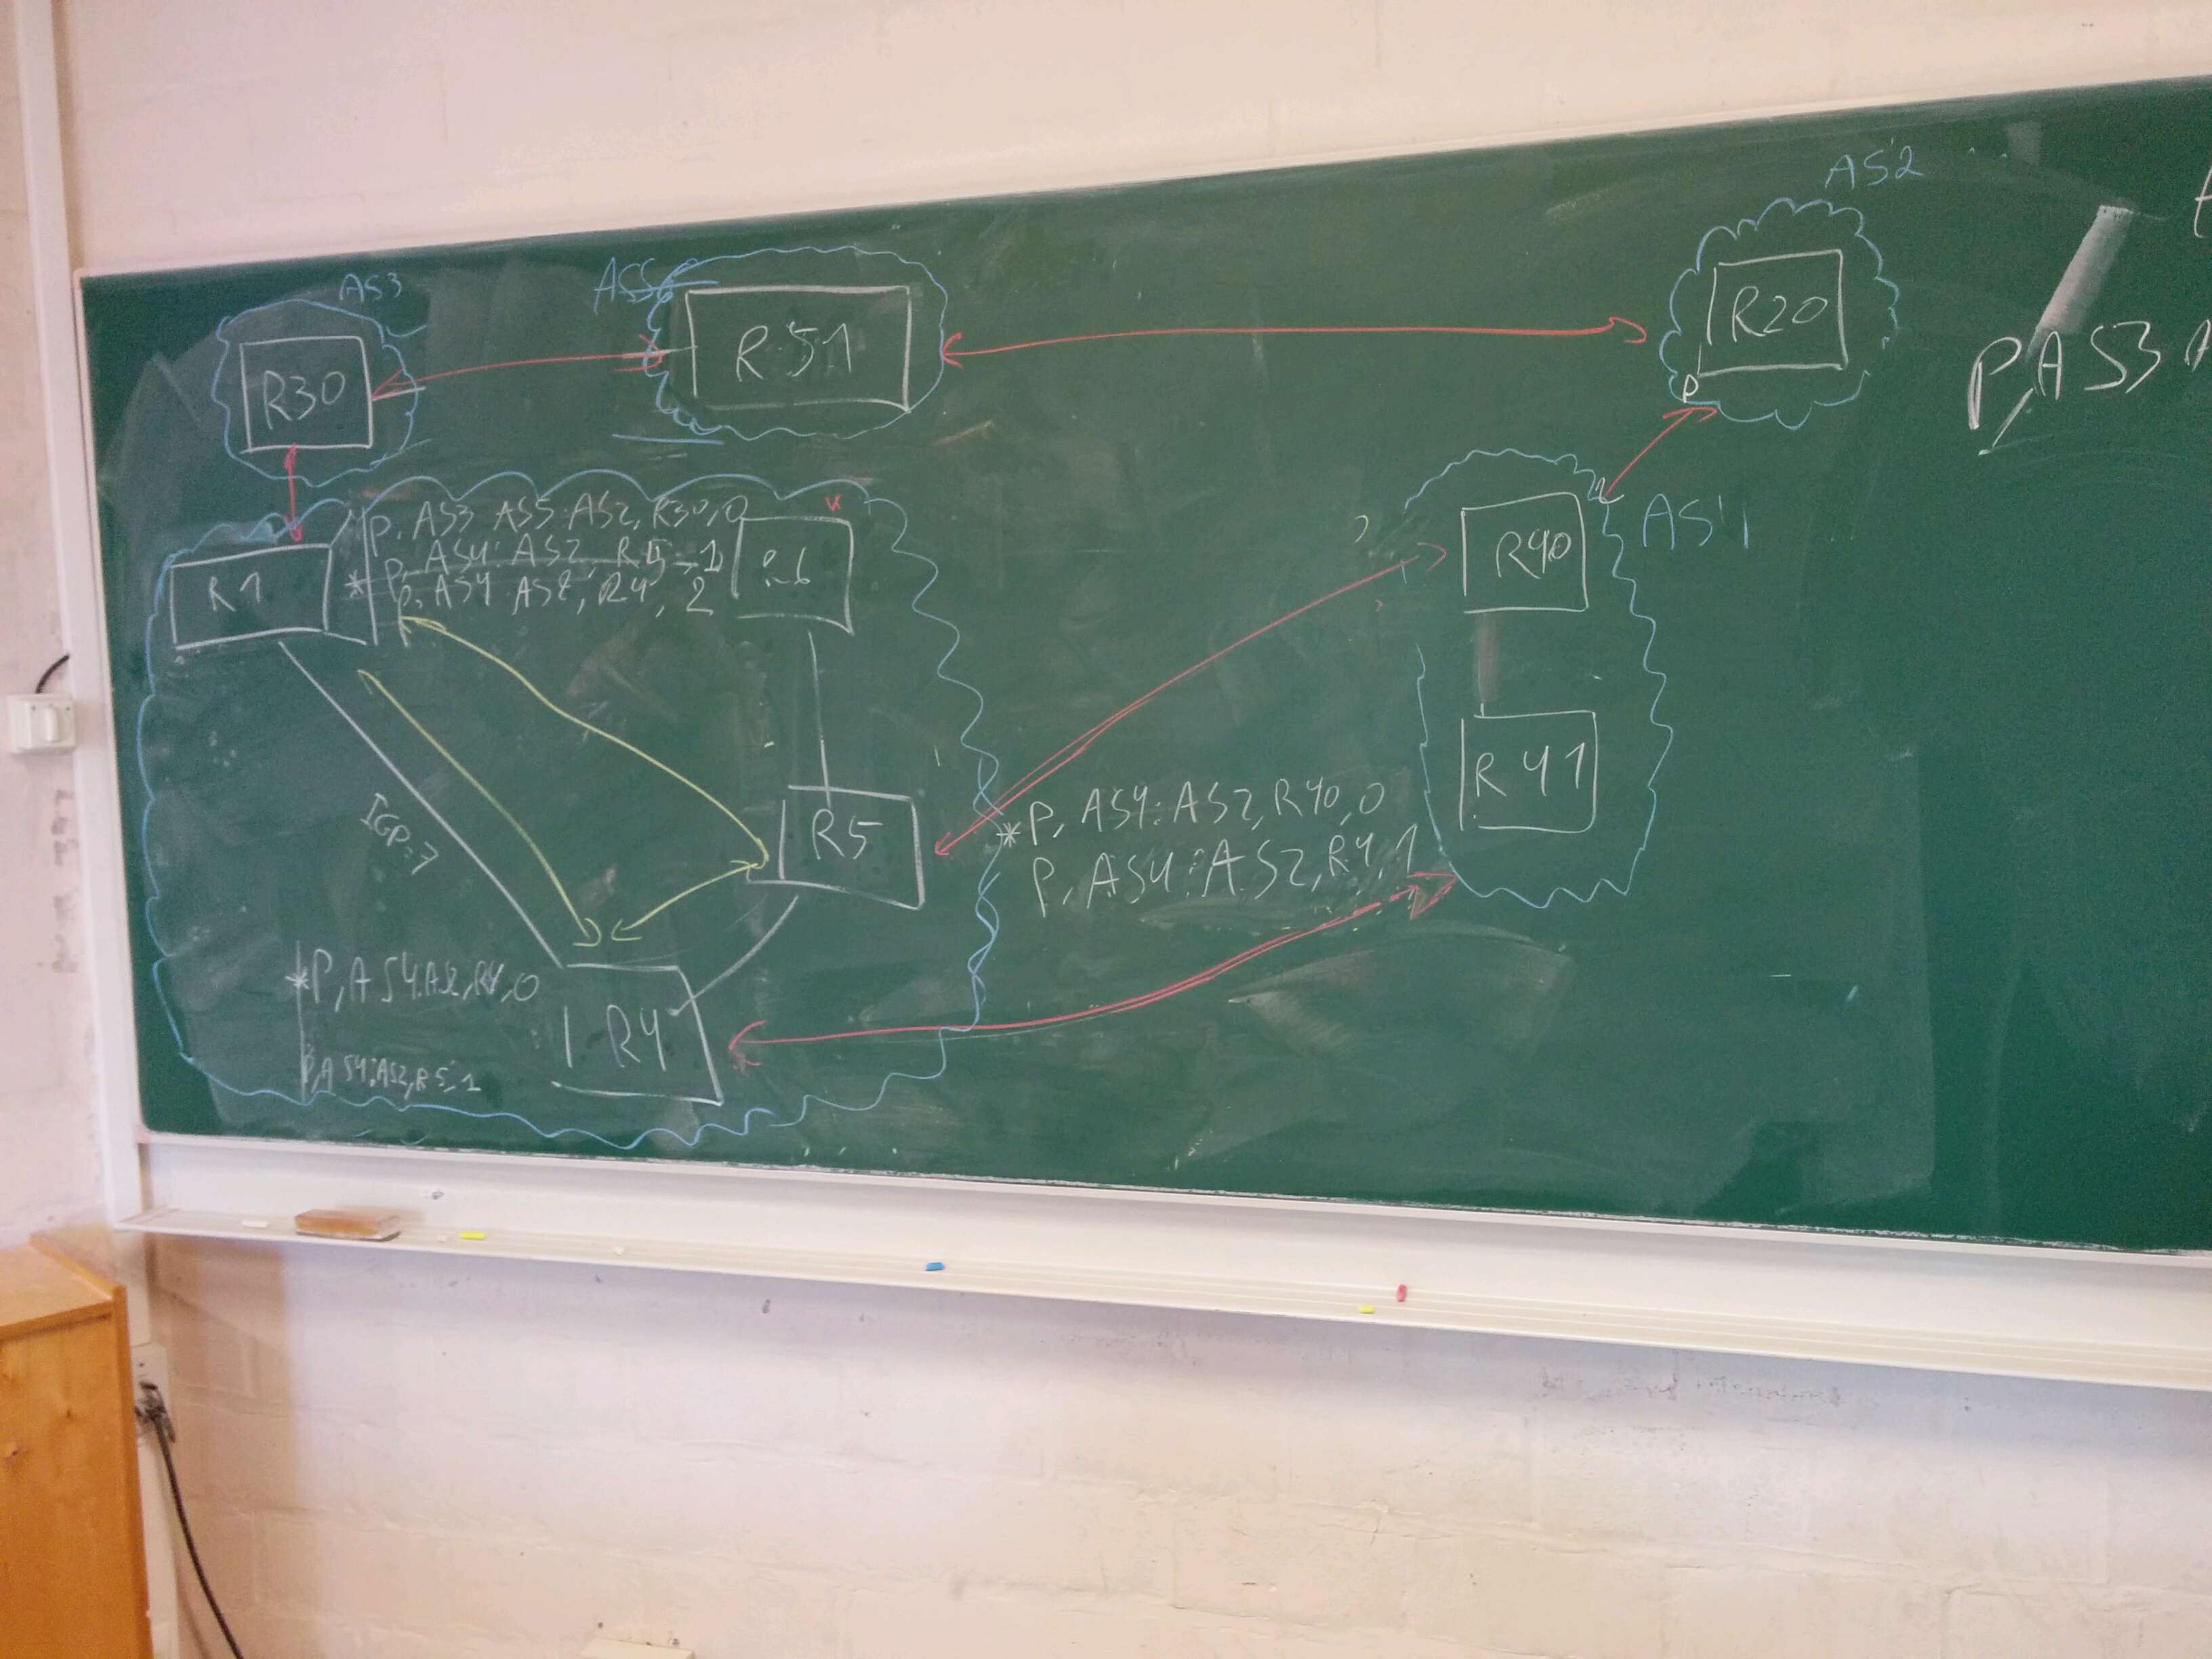 AS2
AS3
AS5
R20
R51
R30
P
P, AS3
P, AS3 AS5:AS2, R30, 0
P, AS4: AS2, R5, 1
* P, AS4 AS2, R4, 2
R1
R40
AS4
R41
IGP=7
R5
* P, AS4:AS2, R40, 0
P, AS4:AS2, R4, 1
* P, AS4:AS2, 0
R4
P, AS4:AS2, R5, 1